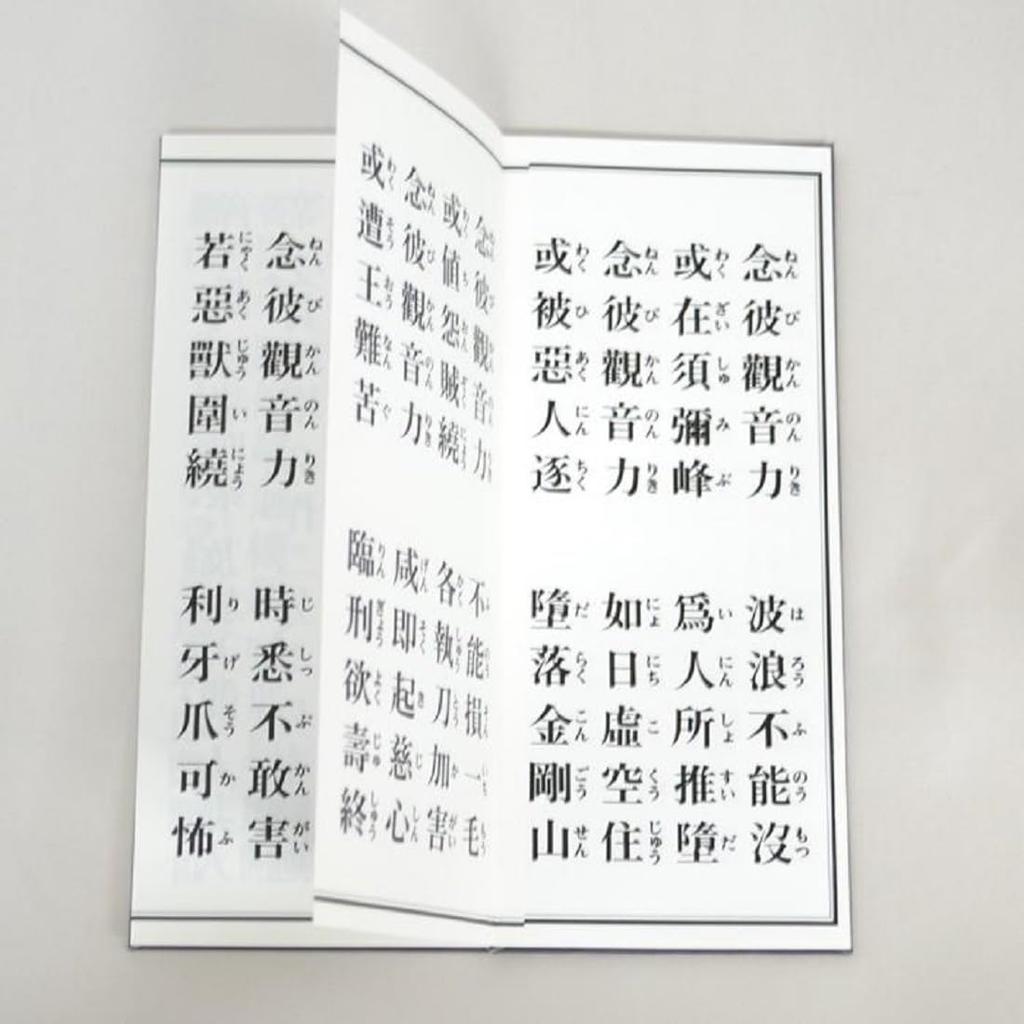 念彼觀音力 波浪不能沒
或在須彌峰 爲人所推墮
念彼觀音力 如日虛空住
或被惡人逐 墮落金剛山
念彼觀音力 不能損一毛
或値怨賊繞 各執刀加害
念彼觀音力 咸即起慈心
或遭王難苦 臨刑欲壽終
念彼觀音力 時悉不敢害
若惡獸圍繞 利牙爪可怖